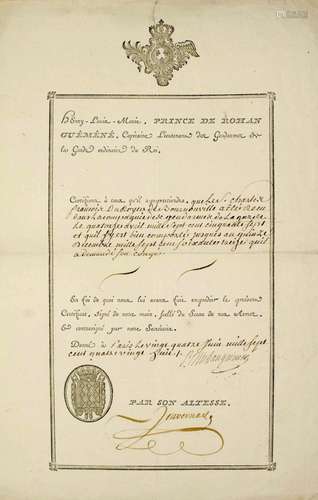 Henry-Louis-Marie, PRINCE DE ROHAN
GUÉMÉNÉ, Capitaine Lieutenant des Gendarmes de
la Garde ordinaire du Roi,
Certifions à tous qu'il appartiendra, que Le S. Charles
François
dans La compagnie des gendarmes de La garde
Le quatre avril mille sept cent cinquante sept
et qu'il s'y est bien comporté jusques au quinze
decembre mille sept cent soixante treize qu'il
a demandé son congé
En foi de quoi nous lui avons fait expédier le présent
Certificat, signé de notre main, scellé du Sceau de nos Armes,
& contresigné par notre Secrétaire.
Donné à Paris Le vingt quatre Juin mille sept
cent quatre vingt huit
PAR SON ALTESSE.